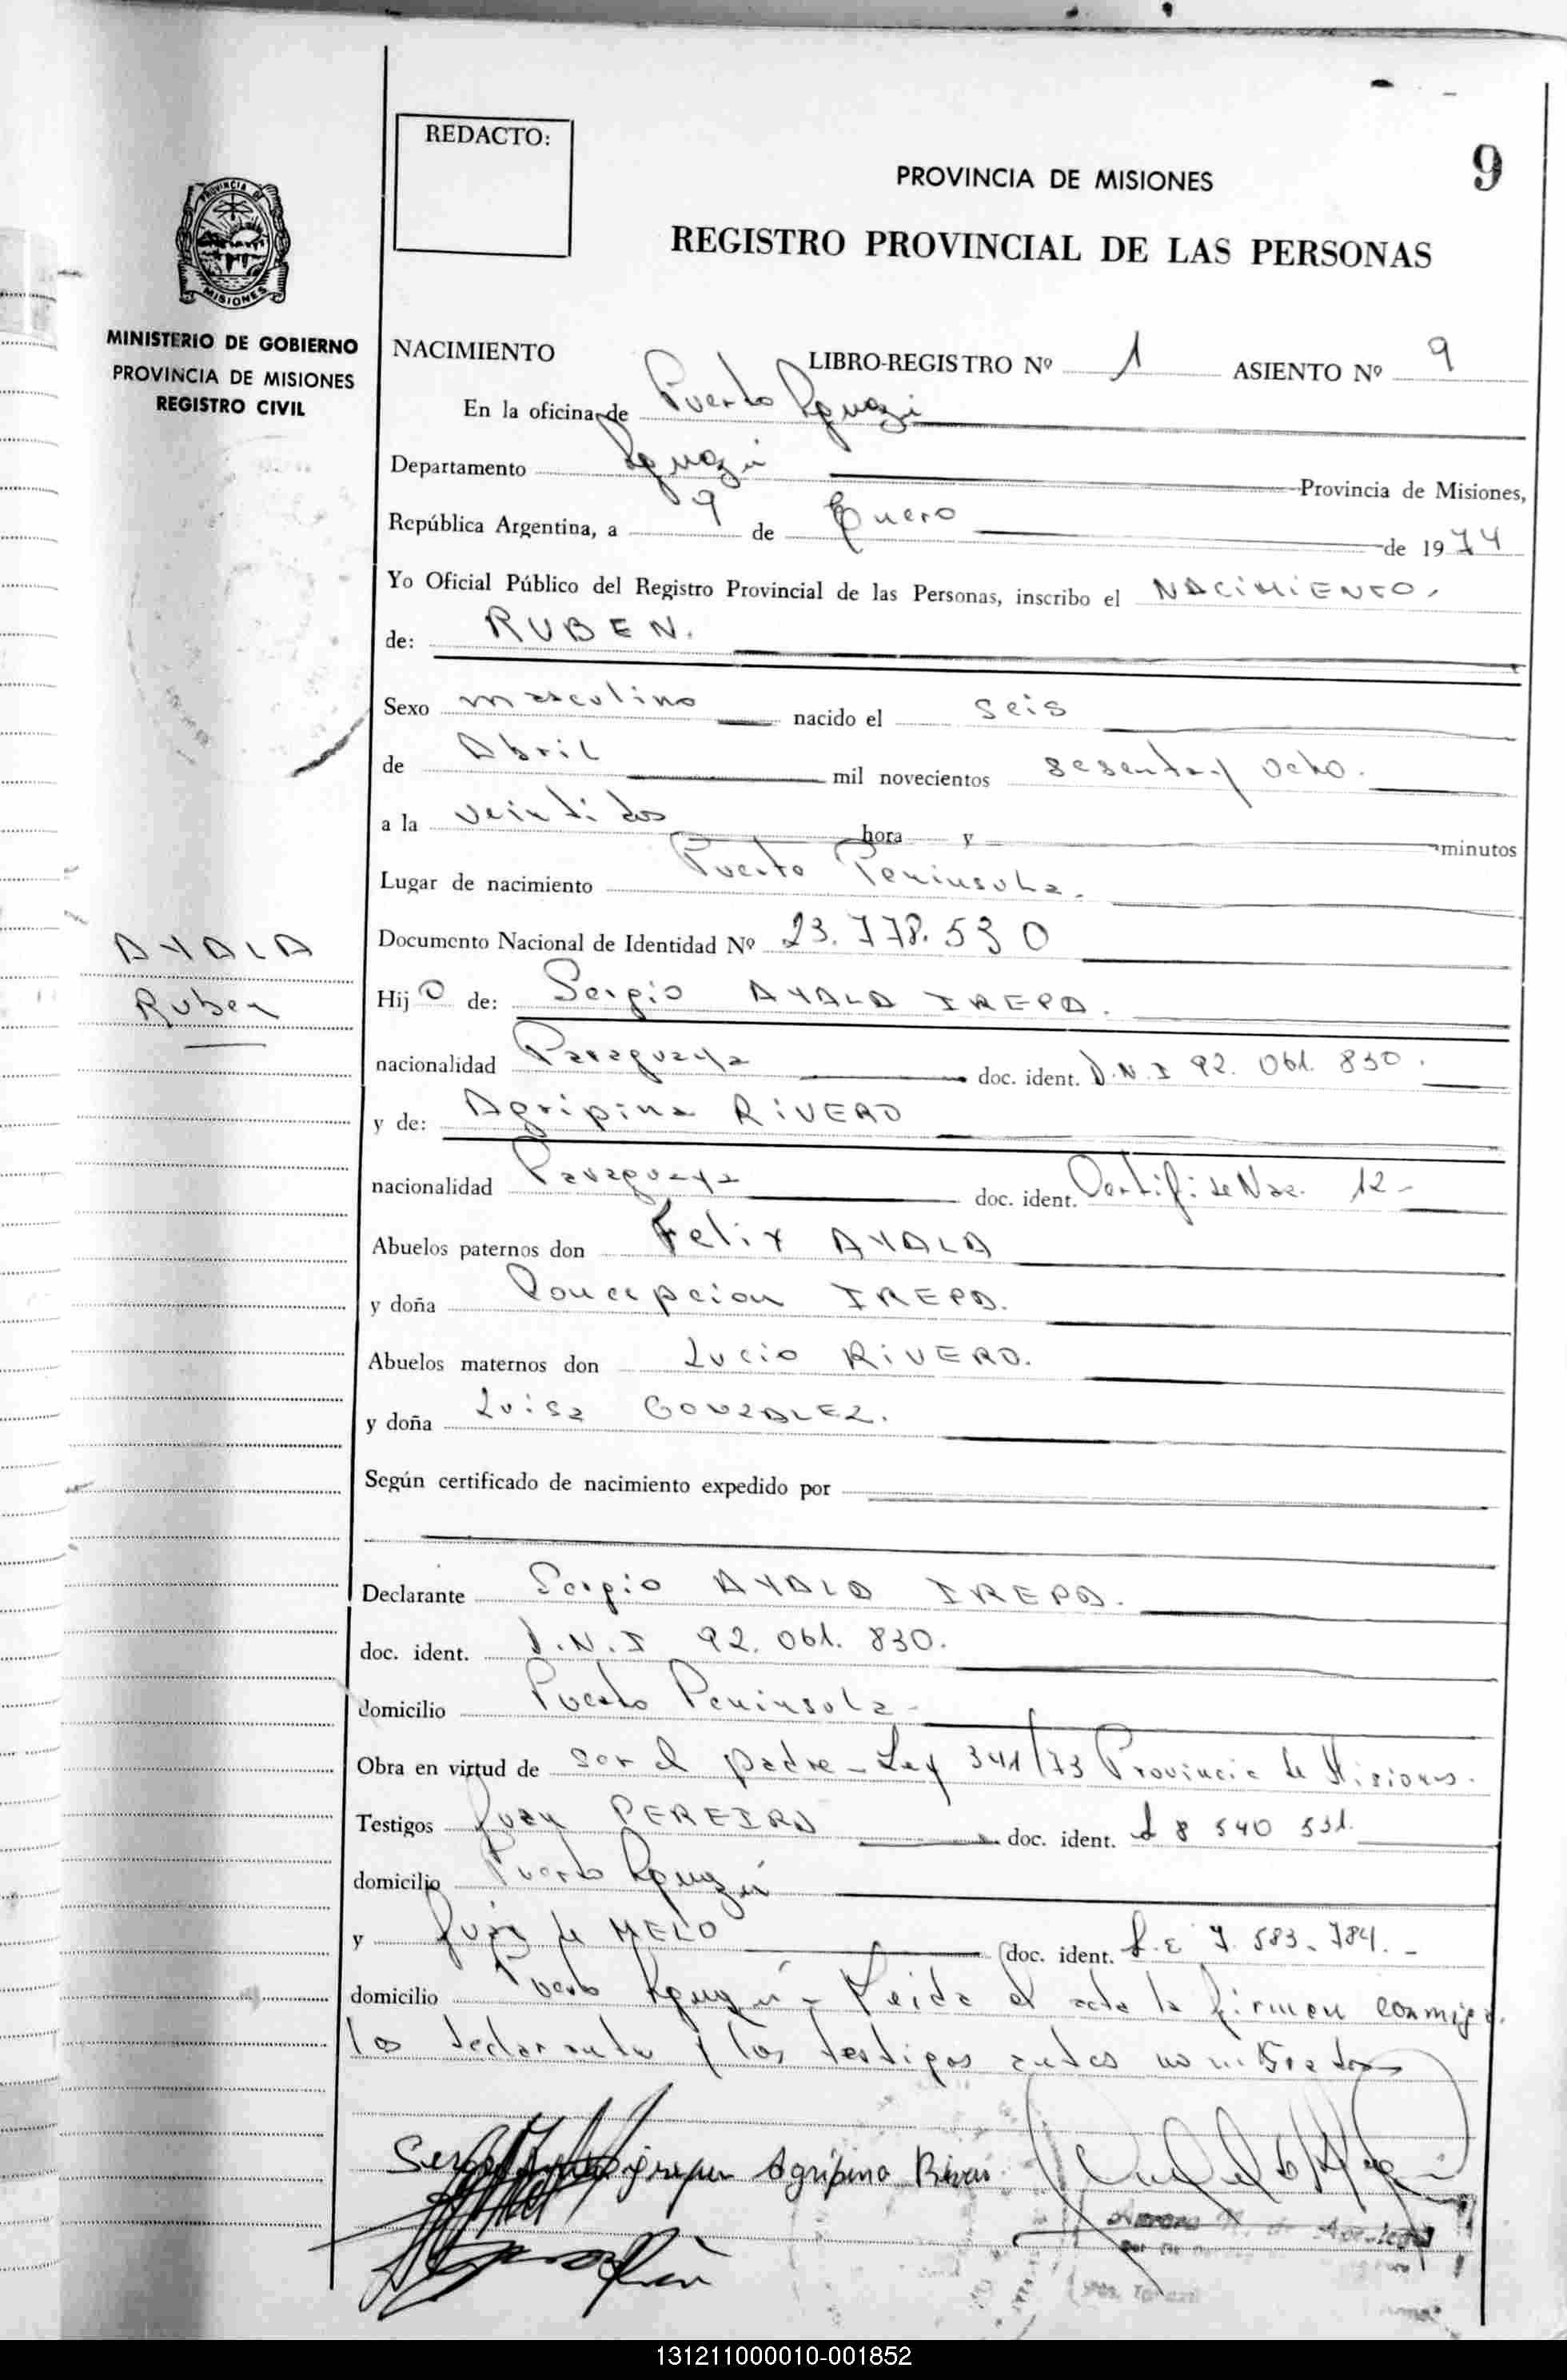 REDACTO:
9
PROVINCIA DE MISIONES
REGISTRO PROVINCIAL DE LAS PERSONAS
PROVINCIA DE
MISIONES
MINISTERIO DE GOBIERNO
PROVINCIA DE MISIONES
REGISTRO CIVIL
NACIMIENTO LIBRO-REGISTRO Nº 1 ASIENTO Nº 9
En la oficina de Puerto Iguazú
Departamento Iguazú Provincia de Misiones,
República Argentina, a 9 de Enero de 1974
Yo Oficial Público del Registro Provincial de las Personas, inscribo el NACIMIENTO.
de: RUBEN.
Sexo masculino nacido el seis
de Abril mil novecientos sesenta y ocho.
a la veintidos hora y minutos
Lugar de nacimiento Puerto Peninsula.
AYALA
Ruben
Documento Nacional de Identidad Nº 23.778.530
Hijo de: Sergio AYALA IREPA.
nacionalidad Paraguaya doc. ident. D.N.I 92. 061. 830.
y de: Agripina RIVERO
nacionalidad Paraguaya doc. ident. Certifi. de Nac. 12-
Abuelos paternos don Felix AYALA
y doña Concepcion IREPA.
Abuelos maternos don Lucio RIVERO.
y doña Luisa GONZALEZ.
Según certificado de nacimiento expedido por
Declarante Sergio AYALA IREPA.
doc. ident. D.N.I 92. 061. 830.
domicilio Puerto Peninsula-
Obra en virtud de ser el padre - Ley 341/73 Provincia de Misiones.
Testigos Juan PEREIRA doc. ident. 8 540 531.
domicilio Puerto Iguazú
y Juan de MELO doc. ident. L.E 7. 583. 784. -
domicilio Puerto Iguazú - Leida el acta la firman conmigo.
los declarante y los testigos antes nombrados
Agripina
131211000010-001852